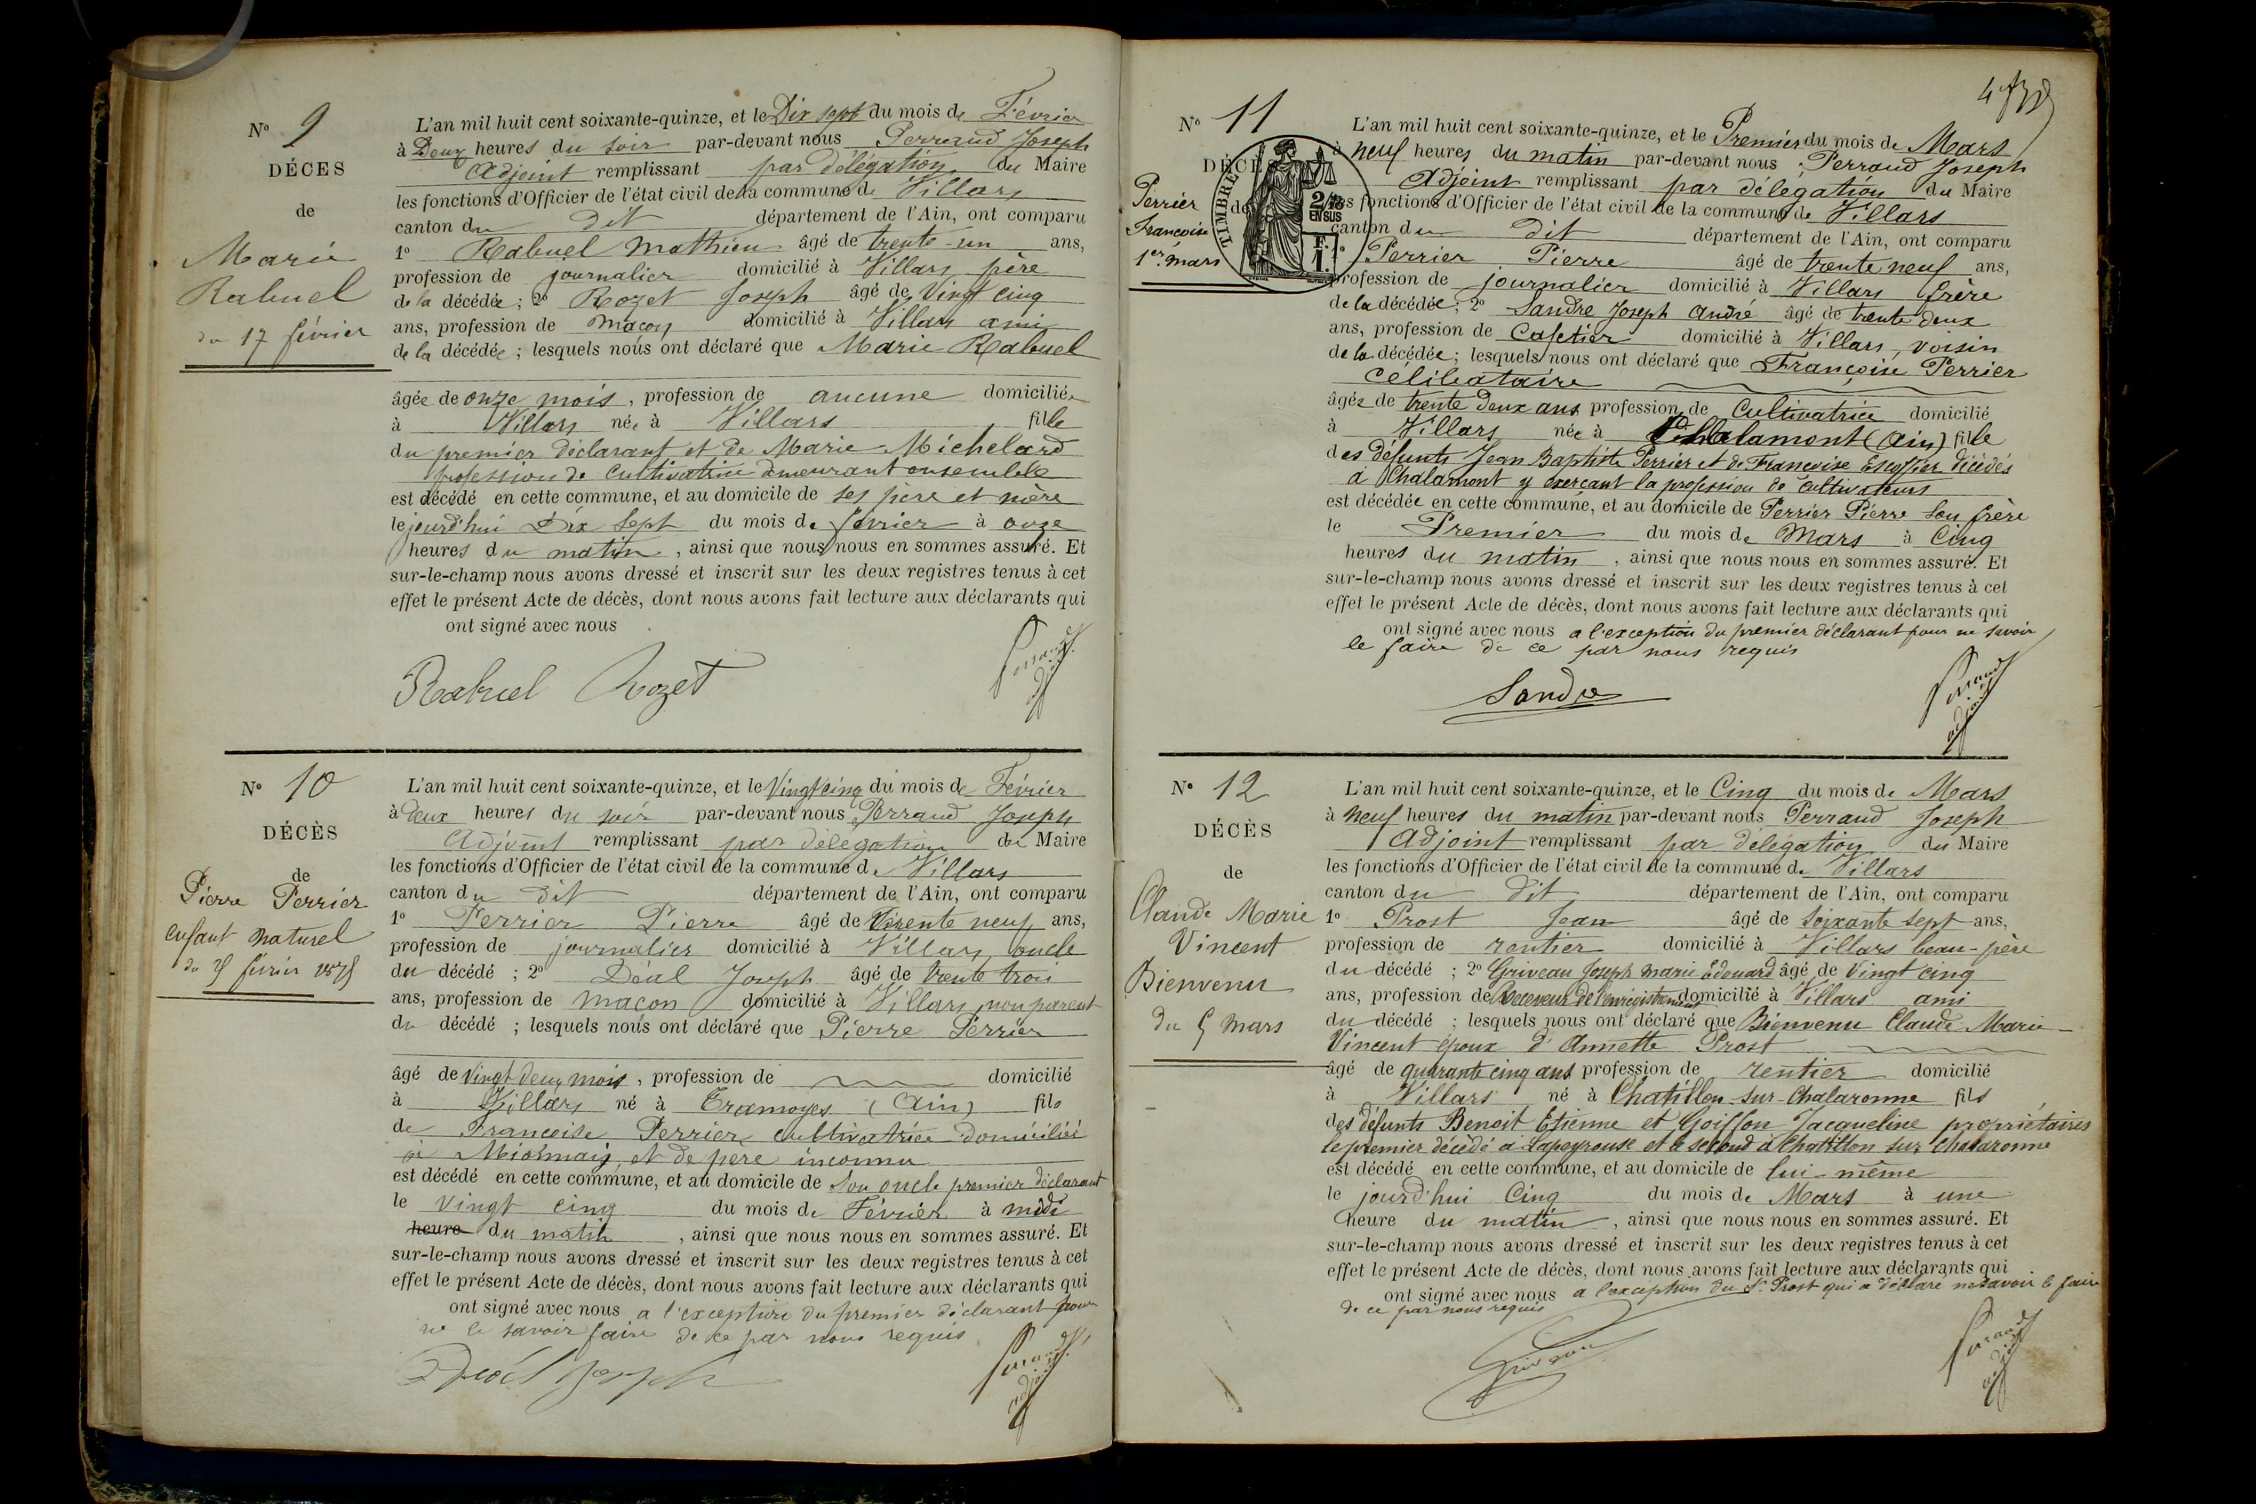 N° 9
DÉCES
de
Marie
Rabuel
du 17 février
L'an mil huit cent soixante-quinze, et le Dix sept du mois de Février
à Deux heures du soir par-devant nous Perraud Joseph
Adjoint remplissant par délégation du Maire
les fonctions d'Officier de l'état civil de la commune de Villars
canton du dit département de l'Ain, ont comparu
1° Rabuel Mathieu âgé de trente-un ans,
profession de journalier domicilié à Villars, père
de la décédée ; 2° Rozet Joseph âgé de Vingt cinq
ans, profession de Maçon domicilié à Villars ami
de la décédée ; lesquels nous ont déclaré que Marie Rabuel
âgée de onze mois, profession de aucune domiciliée
à Villars née à Villars fille
du premier déclarant et de Marie Michelard
profession de Cultivatrice demeurant ensemble
est décédé en cette commune, et au domicile de ses père et mère
le jourd'hui Dix Sept du mois de février à onze
heures du matin, ainsi que nous nous en sommes assuré. Et
sur-le-champ nous avons dressé et inscrit sur les deux registres tenus à cet
effet le présent Acte de décès, dont nous avons fait lecture aux déclarants qui
ont signé avec nous
Rabuel Rozet Perraud adj
N° 10
DÉCÈS
de
Pierre Perrier
enfant naturel
du 25 février 1875
L'an mil huit cent soixante-quinze, et le Vingt cinq du mois de Février
à deux heures du soir par-devant nous Perraud Joseph
Adjoint remplissant par délégation du Maire
les fonctions d'Officier de l'état civil de la commune de Villars
canton du dit département de l'Ain, ont comparu
1° Perrier Pierre âgé de trente neuf ans,
profession de journalier domicilié à Villars, oncle
du décédé ; 2° Déal Joseph âgé de trente trois
ans, profession de maçon domicilié à Villars, non parent
du décédé ; lesquels nous ont déclaré que Pierre Perrier
âgé de Vingt deux mois, profession de domicilié
à Villars né à Tramoyes (Ain) fils
de Françoise Perrier cultivatrice domiciliée
à et de père inconnu
est décédé en cette commune, et au domicile de son oncle premier déclarant
le vingt cinq du mois de Février à midi
heure du matin, ainsi que nous nous en sommes assuré. Et
sur-le-champ nous avons dressé et inscrit sur les deux registres tenus à cet
effet le présent Acte de décès, dont nous avons fait lecture aux déclarants qui
ont signé avec nous a l'exception du premier déclarant pour
ne le savoir faire de ce par nous requis
Joseph Perraud adjoint
N° 11
DÉCÈS
de
Perrier
Françoise
1er mars
TIMBRE
2/10
EN SUS
F.
1.
L'an mil huit cent soixante-quinze, et le Premier du mois de Mars
à neuf heures du matin par-devant nous Perraud Joseph
Adjoint remplissant par délégation du Maire
les fonctions d'Officier de l'état civil de la commune de Villars
canton du dit département de l'Ain, ont comparu
1° Perrier Pierre âgé de trente neuf ans,
profession de journalier domicilié à Villars frère
de la décédée ; 2° Sandre Joseph André âgé de trente deux
ans, profession de Cafetier domicilié à Villars, voisin
de la décédée ; lesquels nous ont déclaré que Françoise Perrier
célibataire
âgée de trente deux ans profession de Cultivatrice domicilié
à Villars née à Chalamont (Ain) fille
des défunts Jean Baptiste Perrier et de Françoise décédés
à Chalamont y exerçant la profession de cultivateurs
est décédée en cette commune, et au domicile de Perrier Pierre son frère
le Premier du mois de Mars à Cinq
heures du matin, ainsi que nous nous en sommes assuré. Et
sur-le-champ nous avons dressé et inscrit sur les deux registres tenus à cet
effet le présent Acte de décès, dont nous avons fait lecture aux déclarants qui
ont signé avec nous a l'exception du premier déclarant pour ne savoir
le faire de ce par nous requis
Sandre Perraud adjoint
N° 12
DÉCÈS
de
Claude Marie
Vincent
Bienvenu
du 5 mars
L'an mil huit cent soixante-quinze, et le Cinq du mois de Mars
à neuf heures du matin par-devant nous Perraud Joseph
Adjoint remplissant par délégation du Maire
les fonctions d'Officier de l'état civil de la commune de Villars
canton du dit département de l'Ain, ont comparu
1° Prost Jean âgé de soixante sept ans,
profession de rentier domicilié à Villars beau-père
du décédé ; 2° Griveau Joseph Marie Edouard âgé de Vingt cinq
ans, profession de Receveur de l'enregistrement domicilié à Villars ami
du décédé ; lesquels nous ont déclaré que Bienvenu Claude Marie
Vincent époux d'Annette Prost
âgé de quarante cinq ans profession de rentier domicilié
à Villars né à Chatillon-sur-Chalaronne fils
des défunts Benoit Etienne et Goiffon Jacqueline propriétaires
le premier décédé à Lapeyrouse et le second à Chatillon sur Chalaronne
est décédé en cette commune, et au domicile de lui-même
le jourd'hui Cinq du mois de Mars à une
heure du matin, ainsi que nous nous en sommes assuré. Et
sur-le-champ nous avons dressé et inscrit sur les deux registres tenus à cet
effet le présent Acte de décès, dont nous avons fait lecture aux déclarants qui
ont signé avec nous a l'exception du Sr Prost qui a déclaré ne savoir le faire
de ce par nous requis
Griveau Perraud adj